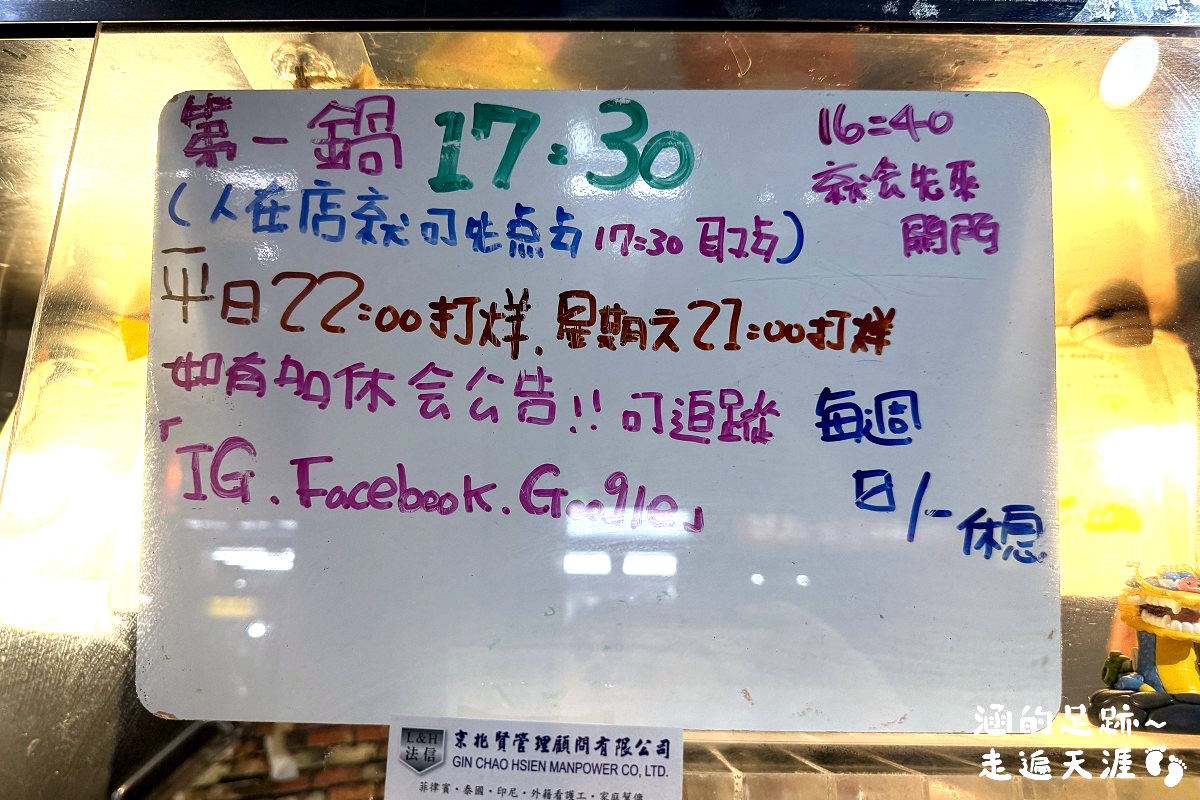 第一鍋 17:30
16:40
就会先來
開門
(人在店就可先点占 17:30 取占)
平日22:00打烊.星期天21:00打烊
如有多休会公告!!可追蹤
「IG.Facebook.Google」
每週
日/一休息
L&H
法信
GIN CHAO HSIEN MANPOWER CO, LTD.
菲律賓・泰國・印尼・外籍看護工・家庭幫傭
涵的足跡~
走遍天涯